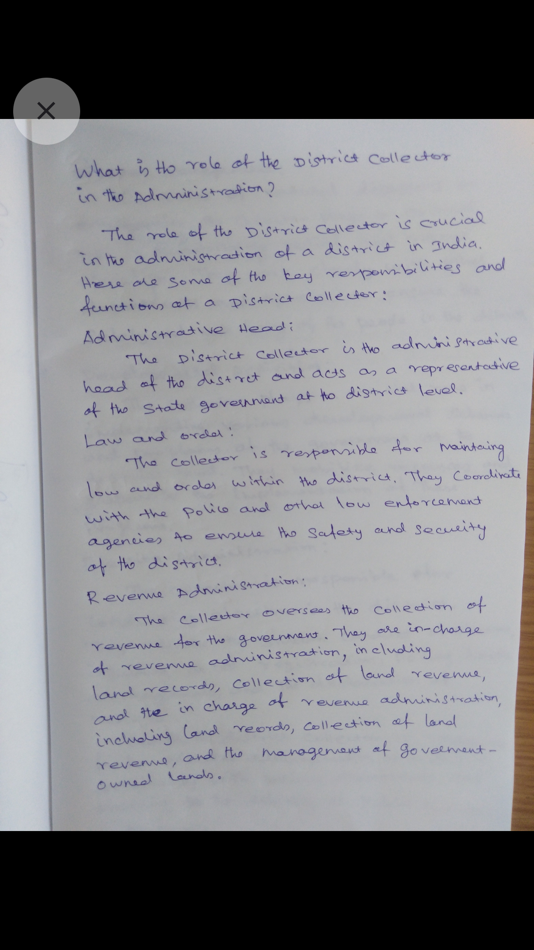 What is the role of the District Collector
in the Administration?
The role of the District Collector is crucial
in the administration of a district in India.
Here are some of the key responsibilities and
functions of a District Collector:
Administrative Head:
The District Collector is the administrative
head of the distret and acts as a representative
of the State government at the district level.
Law and order:
The Collector is responsible for Maintaing
low and order within the district. They Coordinate
with the police and other low enforcement
agencies to ensure the Safety and Security
of the district.
Revenue Administration:
The Collector oversees the collection of
revenue for the government. They are in-charge
of revenue administration, including
land records, Collection of land revenue,
and the in charge of revenue administration,
including land reords, Collection of land
revenue, and the management of goverment-
owned lands.